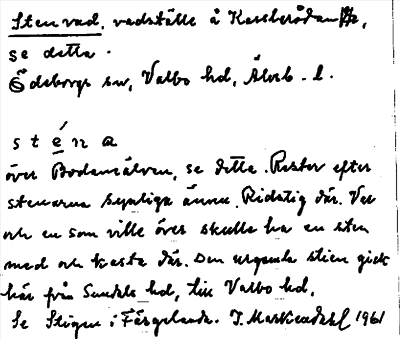 Stenvad, vadställe å Kesslerödan,
se detta.
Ödeborgs sn, Valbo hd, Älvsb. l.
sténa
över Bodaneälven, se detta. Rester efter
stenarna synliga ännu. Ridstig där. Var
och en som ville över skulle ha en sten
med och kasta där. Den urgamla stien gick
här från Sundals hd, till Valbo hd.
Se Stigen i Färgelanda. 1961